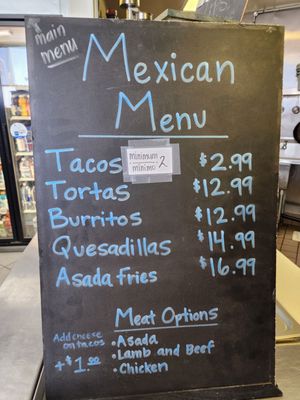 main
menu
Mexican
Menu
Tacos minimum $2.99
mínimo 2
Tortas $12.99
Burritos $12.99
Quesadillas $14.99
Asada Fries $16.99
Meat Options
Add cheese
on tacos
+$1.00
• Asada
• Lamb and Beef
• Chicken